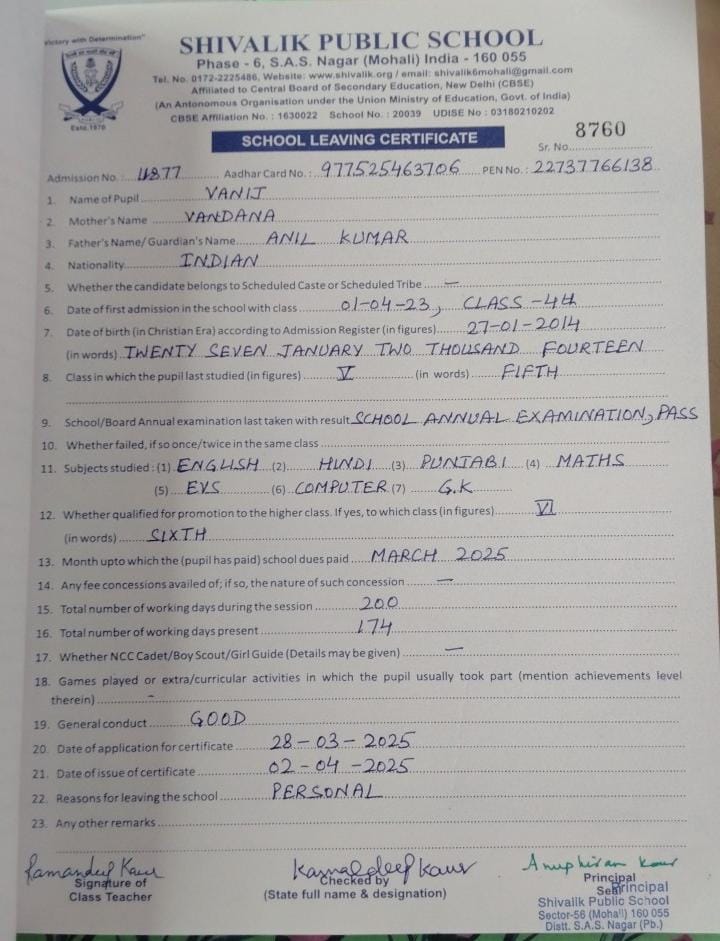 "Victory with Determination"
SHIVALIK PUBLIC SCHOOL
Phase - 6, S.A.S. Nagar (Mohali) India - 160 055
Tel. No. 0172-2225486, Website: www.shivalik.org / email: shivalik6mohali@gmail.com
Affiliated to Central Board of Secondary Education, New Delhi (CBSE)
(An Antonomous Organisation under the Union Ministry of Education, Govt. of India)
CBSE Affiliation No. : 1630022 School No. : 20039 UDISE No : 03180210202
Estd.1970
SCHOOL LEAVING CERTIFICATE
Sr. No. 8760
Admission No.: 11877 Aadhar Card No.: 977525463706 PEN No.: 22737766138
1. Name of Pupil VANIT
2. Mother's Name VANDANA
3. Father's Name/ Guardian's Name ANIL KUMAR
4. Nationality INDIAN
5. Whether the candidate belongs to Scheduled Caste or Scheduled Tribe —
6. Date of first admission in the school with class 01-04-23, CLASS-4th
7. Date of birth (in Christian Era) according to Admission Register (in figures) 27-01-2014
(in words) TWENTY SEVEN JANUARY TWO THOUSAND FOURTEEN
8. Class in which the pupil last studied (in figures) V (in words) FIFTH
9. School/Board Annual examination last taken with result SCHOOL ANNUAL EXAMINATION, PASS
10. Whether failed, if so once/twice in the same class
11. Subjects studied : (1) ENGLISH (2) HINDI (3) PUNJABI (4) MATHS
(5) EVS (6) COMPUTER (7) G.K
12. Whether qualified for promotion to the higher class. If yes, to which class (in figures) VI
(in words) SIXTH
13. Month upto which the (pupil has paid) school dues paid MARCH 2025
14. Any fee concessions availed of; if so, the nature of such concession —
15. Total number of working days during the session 200
16. Total number of working days present 174
17. Whether NCC Cadet/Boy Scout/Girl Guide (Details may be given) —
18. Games played or extra/curricular activities in which the pupil usually took part (mention achievements level
therein) -
19. General conduct GOOD
20. Date of application for certificate 28-03-2025
21. Date of issue of certificate 02-04-2025
22. Reasons for leaving the school PERSONAL
23. Any other remarks
Ramandeep Kaur Kamaldeep Kaur Anupkiran Kaur
Signature of Class Teacher
Checked by
(State full name & designation)
Principal
Seal
Principal
Shivalik Public School
Sector-56 (Mohali) 160 055
Distt. S.A.S. Nagar (Pb.)